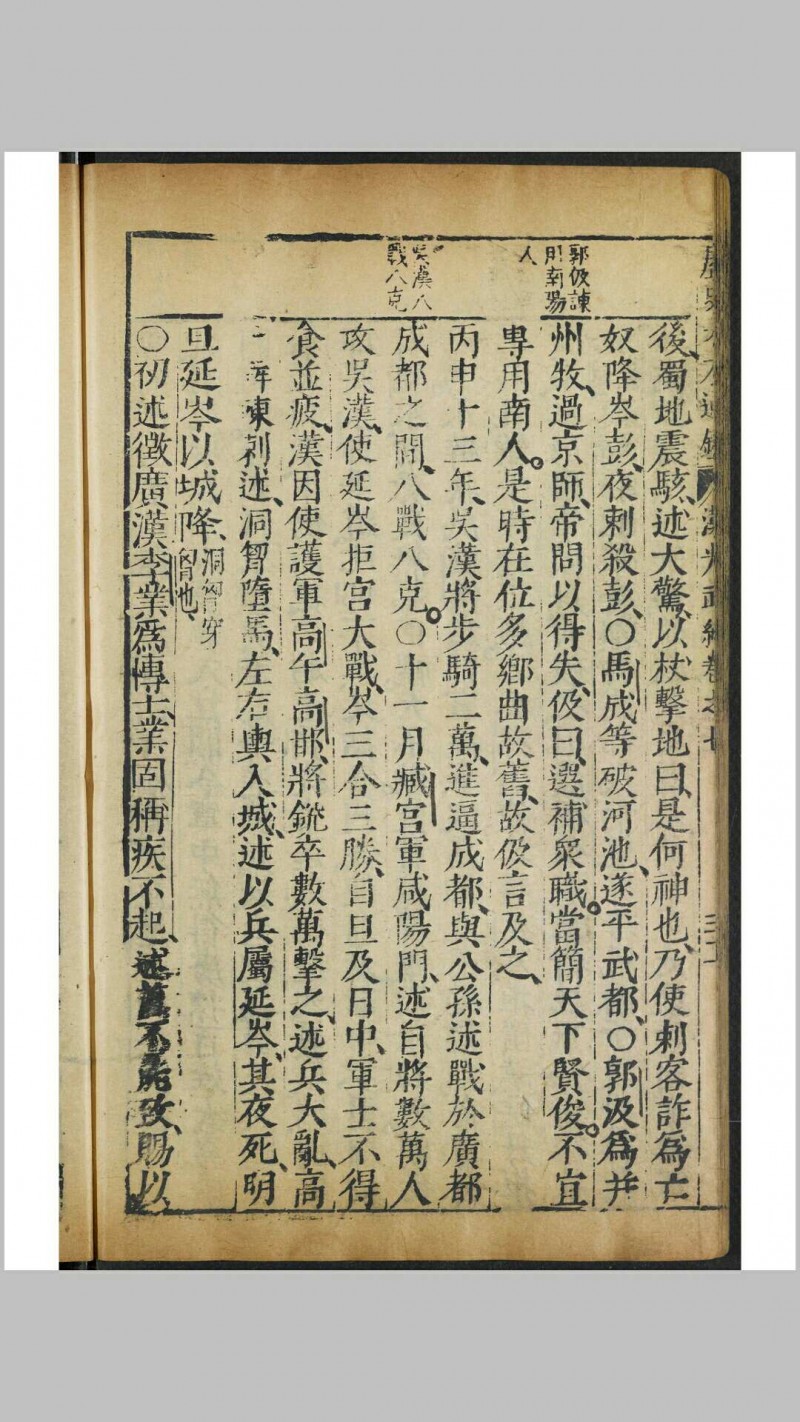 漢光武紀卷之七
郭伋諫
用南陽
人
吳漢八
戰八克
後蜀地震駭、述大驚、以杖擊地曰、是何神也、乃使刺客詐爲亡
奴降岑彭、夜刺殺彭、〇馬成等破河池、遂平武都、〇郭汲爲并
州牧、過京師、帝問以得失、伋曰、選補衆職、當簡天下賢俊、不宜
專用南人。是時在位多鄉曲故舊、故伋言及之、
丙申十三年、吳漢將步騎二萬、進逼成都、與公孫述戰於廣都
成都之間、八戰八克。〇十一月臧宮軍咸陽門、述自將數萬人
攻吳漢、使延岑拒宮大戰、岑三合三勝、自旦及日中、軍士不得
食並疲、漢因使護軍高午高邯、將銳卒數萬擊之、述兵大亂、高
陣刺述、洞胷墮馬、左右輿入城、述以兵屬延岑、其夜死、明
旦延岑以城降、洞胷穿
胷也、
〇初述徵廣漢李業爲博士、業固稱疾不起、述羞不能致、賜以